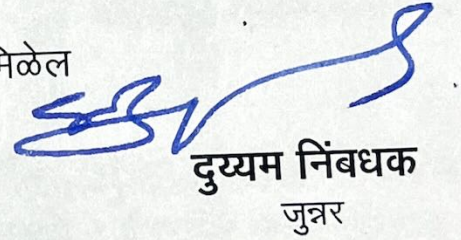 मिळेल
दुय्यम निंबधक
जुन्नर